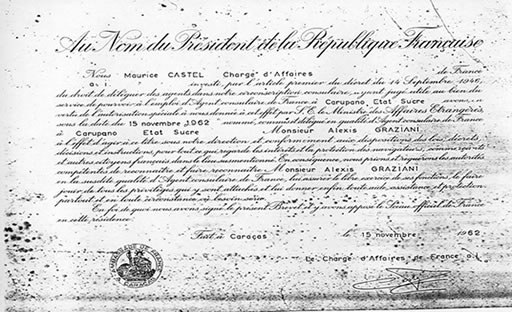 Au Nom du Président de la République Française
Nous Maurice CASTEL Chargé d'Affaires de France
a. i. investi, par l'article premier du décret du 14 Septembre 1946,
du droit de déléguer des agents dans notre circonscription consulaire, ayant jugé utile au bien du
service de pourvoir à l'emploi d'Agent consulaire de France à Carupano, Etat Sucre avons, en
vertu de l'autorisation spéciale à nous donnée à cet effet par S. E. le Ministre des Affaires Etrangères
sous la date du 15 novembre 1962 nommé, commis et délégué en qualité d'Agent consulaire de France
à Carupano Etat Sucre Monsieur Alexis GRAZIANI.
à l'effet d'agir à ce titre sous notre direction et conformément aux dispositions des lois, décrets,
décisions et instructions, pour tout ce qui regarde les intérêts et la protection des navigateurs, commerçants
et autres citoyens français dans le lieu susmentionné. En conséquence, nous prions et requérons les autorités
compétentes de reconnaître et faire reconnaître Monsieur Alexis GRAZIANI
en la susdite qualité d'Agent consulaire de France, lui assurer le libre exercice de ses fonctions, le faire
jouir de tous les privilèges qui y sont attachés et lui donner enfin, toute aide, assistance et protection
partout et en toute circonstance où besoin sera.
En foi de quoi nous avons signé le présent Brevet et y avons apposé le Sceau officiel de France
en cette résidence.
Fait à Caraças le 15 novembre 1962
Le Chargé d'Affaires de France a.i.
AMBASSADE DE FRANCE
CARACAS